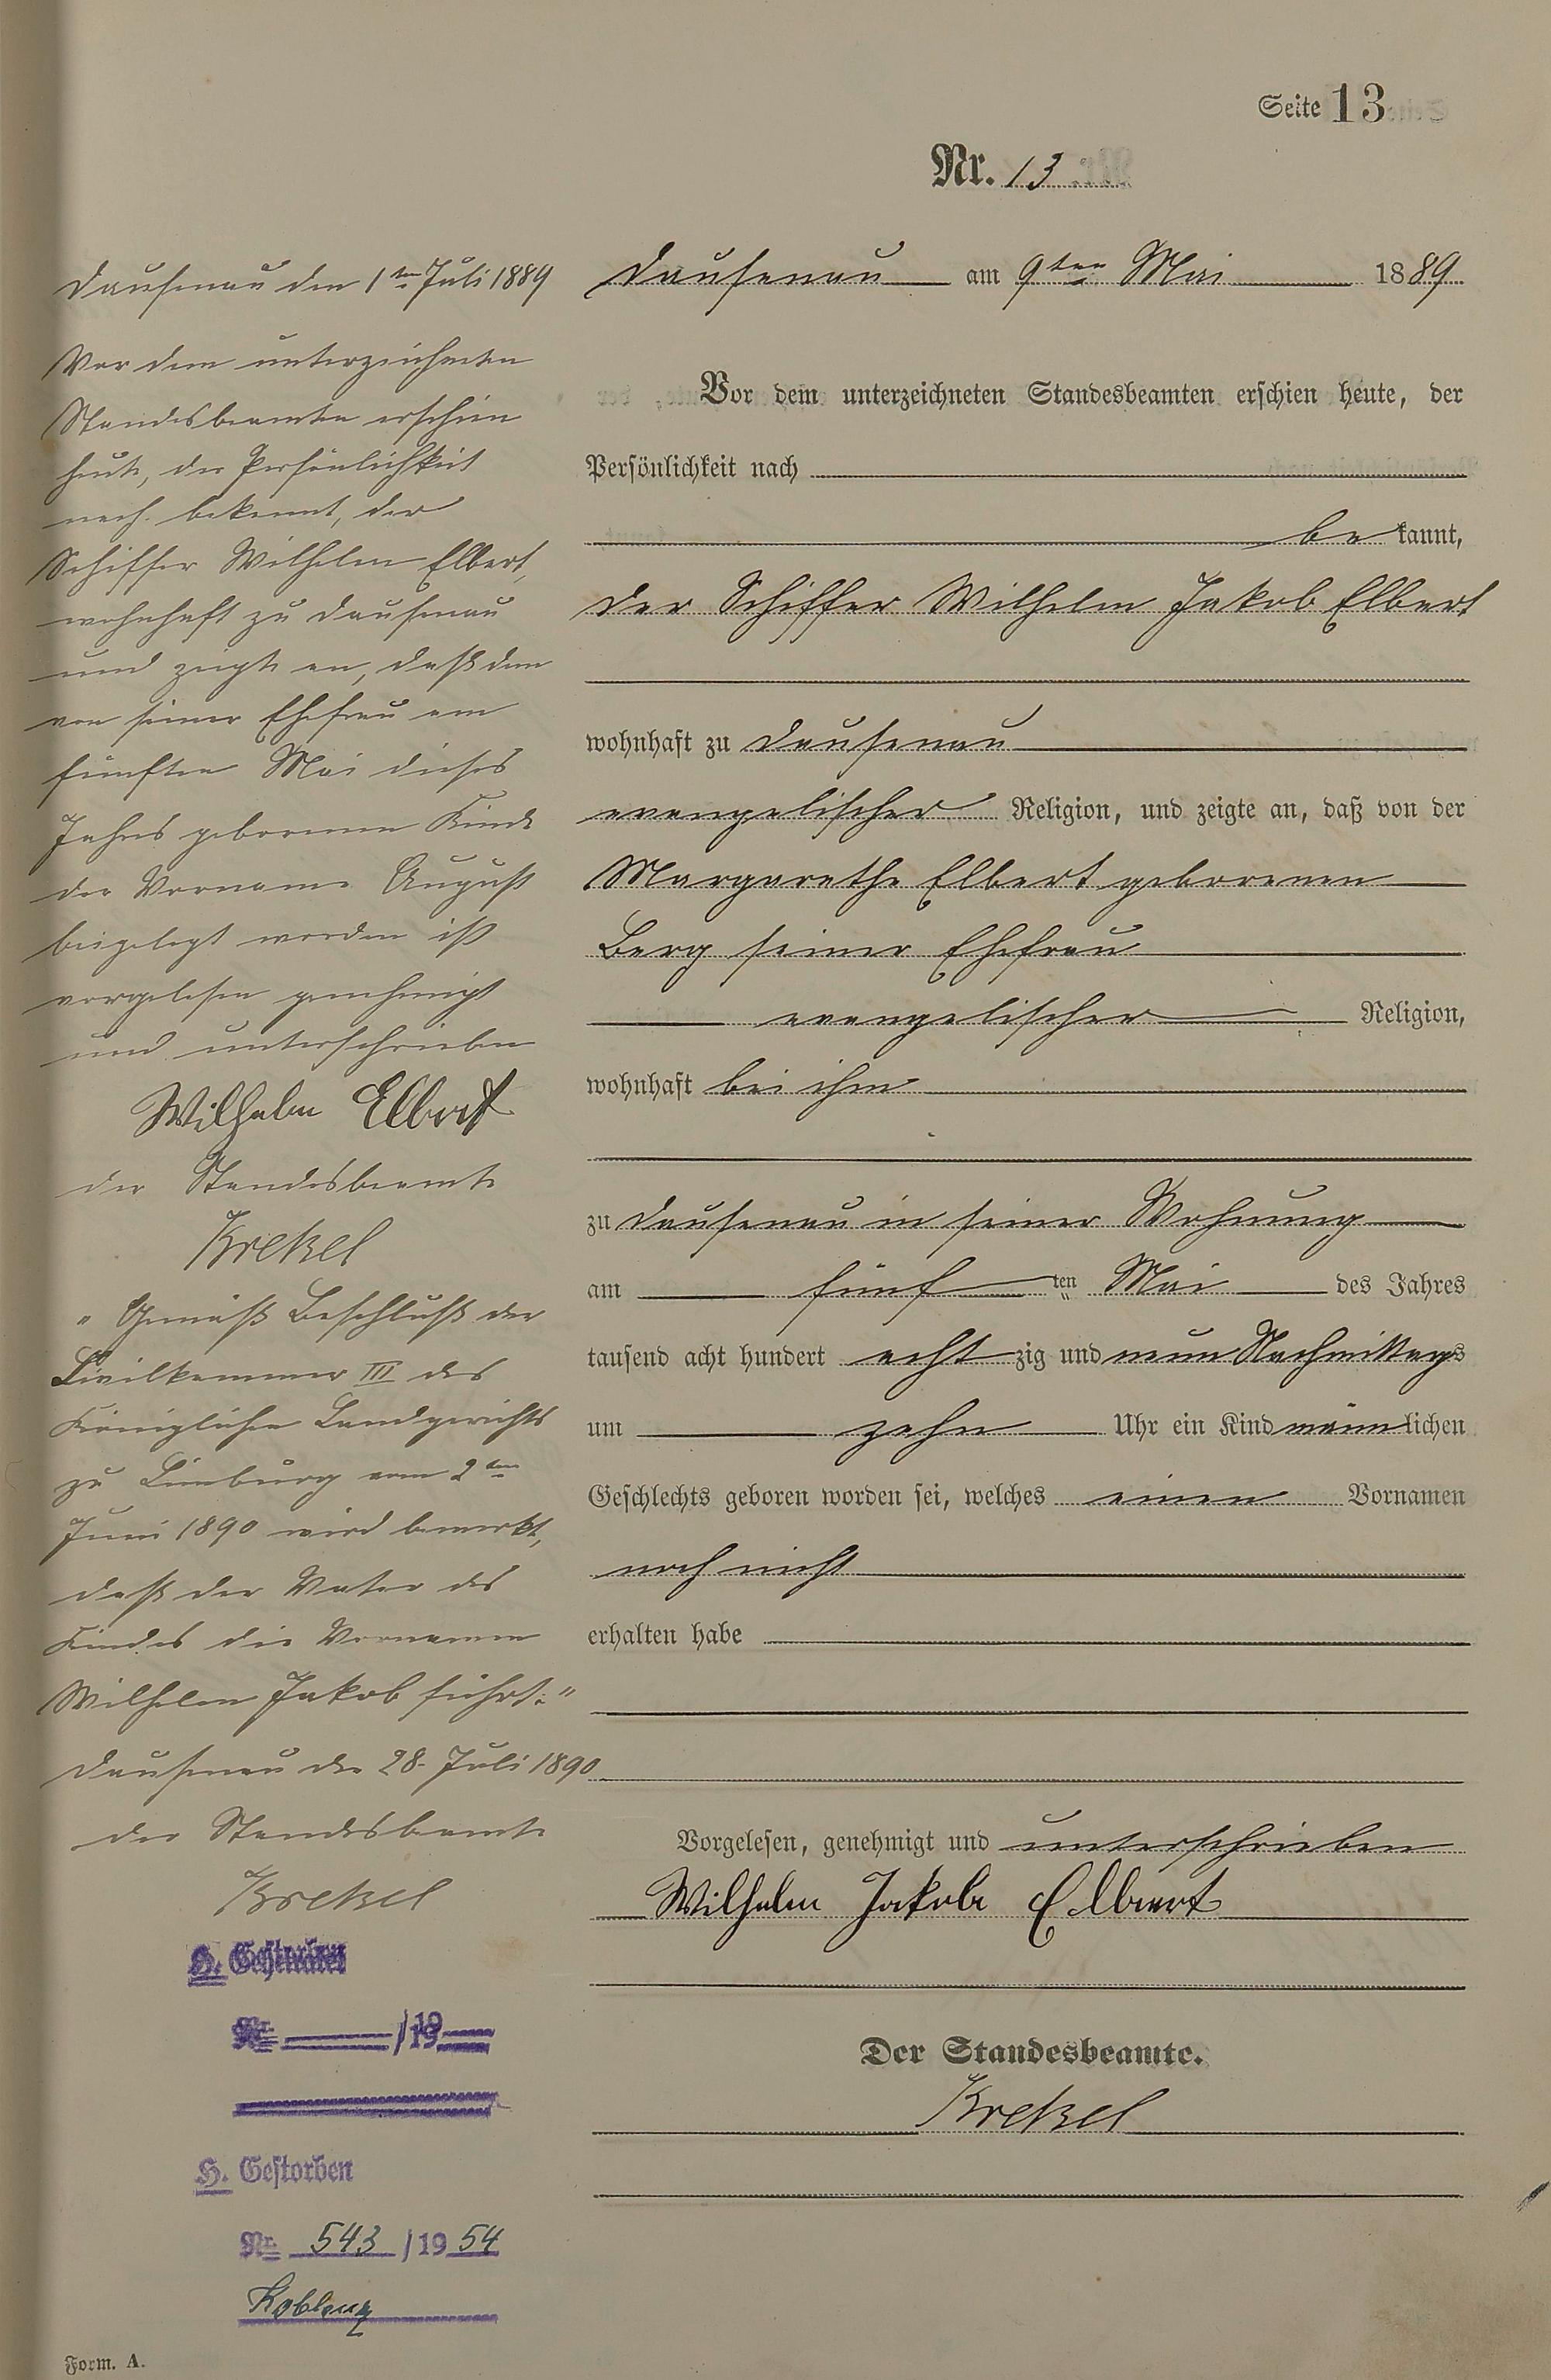 Seite 13
Nr. 13
Dausenau am 9ten Mai 1889
Vor dem unterzeichneten Standesbeamten erschien heute, der
Persönlichkeit nach
be kannt,
der Schiffer Wilhelm Jakob Elbert
wohnhaft zu Dausenau
evangelischer Religion, und zeigte an, daß von der
Margarethe Elbert geborenen
Berg seiner Ehefrau
evangelischer Religion,
wohnhaft bei ihm
zu Dausenau in seiner Wohnung
am fünf ten Mai des Jahres
tausend acht hundert acht zig und neun Nachmittags
um zehn Uhr ein Kind männ lichen
Geschlechts geboren worden sei, welches einen Vornamen
noch nicht
erhalten habe
Vorgelesen, genehmigt und unterschrieben
Wilhelm Jakob Elbert
Der Standesbeamte.
Krekel
Dausenau den 1ten Juli 1889
Vor dem unterzeichneten
Standesbeamten erschien
heute, der Persönlichkeit
nach bekannt, der
Schiffer Wilhelm Elbert,
wohnhaft zu Dausenau
und zeigte an, daß dem
von seiner Ehefrau am
fünften Mai dieses
Jahres geborenen Kinde
der Vorname August
beigelegt worden ist
vorgelesen genehmigt
und unterschrieben
Wilhelm Elbert
der Standesbeamte
Krekel
"Gemäß Beschluß der
Civilkammer III des
Königlichen Landgerichts
zu Limburg vom 2ten
Juni 1890 wird bemerkt,
daß der Vater des
Kindes die Vornamen
Wilhelm Jakob führt."
Dausenau den 28. Juli 1890
der Standesbeamte
Krekel
Nr. /19
H. Gestorben
Nr. 543 /1954
Koblenz
Form. A.